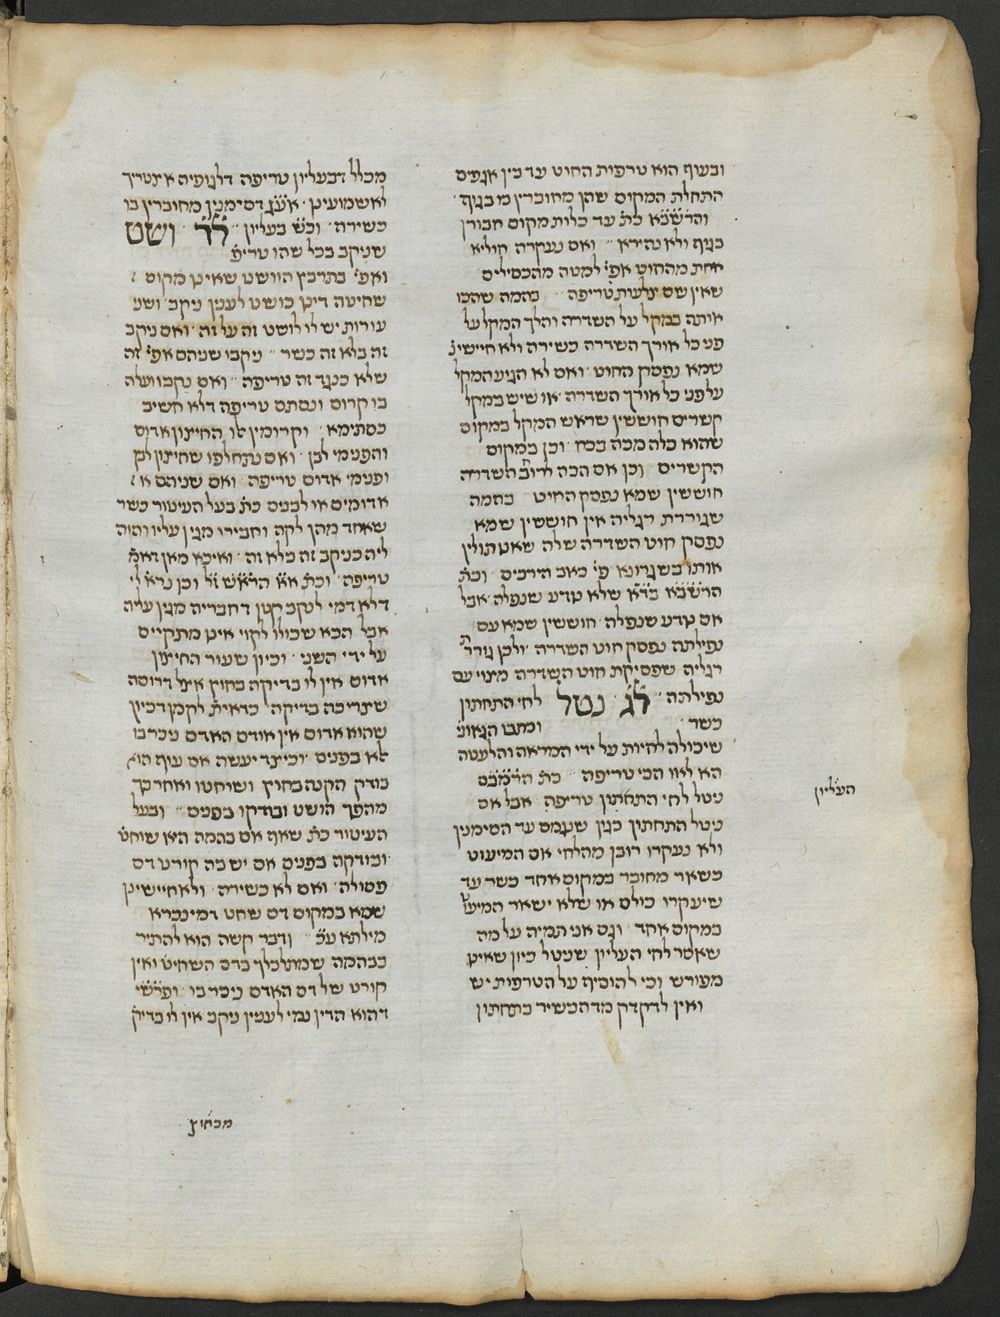 ובעוף הוא טרפית החוט עד בין אגפים
התחלת המקום שהן מחוברין מבגוף
והרשב״א כת׳ עד כלות מקום חבורן
בגוף ולא נהירא ואם נעקרה חוליא
אחת מהחוט אפי׳ למטה מהכסילים
שאין שם צלעות טריפה בהמה שהכו
אותה במקל על השדרה והלך המקל על
פני כל אורך השדרה כשירה ולא חיישי׳
שמא נפסק החוט ואם לא הגיע המקל
על פני כל אורך השדרה או שיש במקל
קשרים חוששין שראש המקל במקום
שהוא כלה מכה בכח וכן במקום
הקשרים וכן אם הכה לרוב השדרה
חוששין שמא נפסק החוט בהמה
שגוררת רגליה אין חוששין שמא
נפסק חוט השדרה שלה שאנו תולין
אותו בשגרונא פי׳ כאב הירכים וכת׳
הרשב״א בד״א שלא נודע שנפלה אבל
אם נודע שנפלה חוששין שמא עם
נפילתה נפסק חוט השדרה ולכן גורר׳
רגליה שפסיקת חוט השדרה מצוי עם
נפילתה ל״ג נטל לחי התחתון
כשר וכתבו הגאוני׳
שיכולה להיות על ידי המראה והלעטה
הא לאו הכי טריפה כת׳ הרמב״ם
ניטל לחי התחתון טריפה אבל אם
ניטל התחתון כגון שנגמם עד הסימנין
ולא נעקרו רובן מהלחי אם המיעוט
כשאר מחובר במקום אחד כשר עד
שיעקרו כולם או שלא ישאר המיעו׳
במקום אחד וגם אני תמיה על מה
שאסר לחי העליון שניטל כיון שאינו
מפורש וכי להוסיף על הטרפות יש
ואין לדקדק מדהכשיר בתחתון
העליון
מכלל דבעליון טריפה דלגופיה אצטריך
לאשמועינן אע״ג דסימנין מחוברין בו
כשירה וכ״ש בעליון ל״ד ושט
שניקב בכל שהו טריפ׳
ואפי׳ בתרבץ הוושט שאינו מקום
שחיטה דינו כושט לענין ניקב ושני
עורות יש לו לושט זה על זה ואם ניקב
זה בלא זה כשר ניקבו שניהם אפי׳ זה
שלא כנגד זה טריפה ואם נקבו ועלה
בו קרום ונסתם טריפה דלא חשיב
כסתימא וקרומין אלו החיצון אדום
והפנימי לבן ואם נתחלפו שחיצון לבן
ופנימי אדום טריפה ואם שניהם
אדומים או לבנים כת׳ בעל העיטור כשר
שאחד מהן לקה וחבירו מגין עליו והוה
ליה כניקב זה בלא זה ואיכא מאן דאמ׳
טריפה וכת׳ א״א הרא״ש ז״ל וכן נרא׳ לי
דלא דמי לנקב קטן דחבריה מגין עליה
אבל הכא שכולו לקוי אינו מתקיים
על ידי השני וכיון שעור החיצון
אדום אין לו בדיקה בחוץ אצל דרוסה
שצריכה בדיקה כדאית׳ לקמן דכיון
שהוא אדום אין אודם האדם ניכר בו
לא בפנים וכיצד יעשה אם עוף הוא
בודק הקנה בחוץ ושוחטו ואחר כך
מהפך הושט ובודקו בפנים ובעל
העיטור כת׳ שאף אם בהמה היא שוחט׳
ובודקה בפנים אם יש בה קורט דם
פסולה ואם לא כשירה ולא חיישינן
שמא במקום דם שחט דמינכרא
מילתא ע״כ ודבר קשה הוא להתיר
בבהמה שמתלכלך בדם השחיט׳ ואין
קורט של דם האדם ניכר בו ופרש״י
דהוא הדין נמי לענין ניקב אין לו בדיק׳
מבחוץ